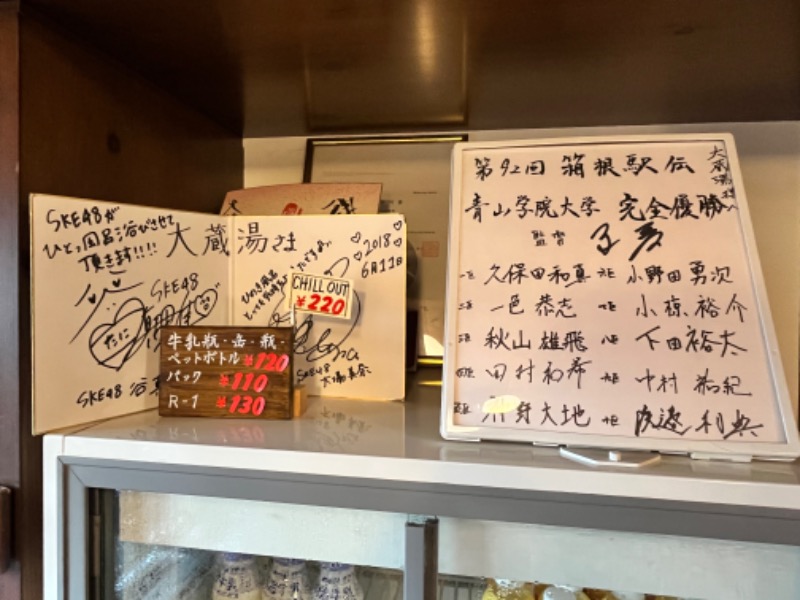 SKE48が
ひとっ風呂浴びさせて
頂き〼!!!!
大蔵湯さま
SKE48
たに
SKE48 谷真
2018
6月11日
SKE48
大場美奈
CHILL OUT
¥220
牛乳瓶・缶・瓶・
ペットボトル ¥120
パック ¥110
R-1 ¥130
大蔵湯様へ
第92回 箱根駅伝
青山学院大学 完全優勝
監督
一区 久保田和真 六区 小野田勇次
二区 一色恭志 七区 小椋裕介
三区 秋山雄飛 八区 下田裕太
四区 田村和希 九区 中村祐紀
五区 神野大地 十区 渡邉利典